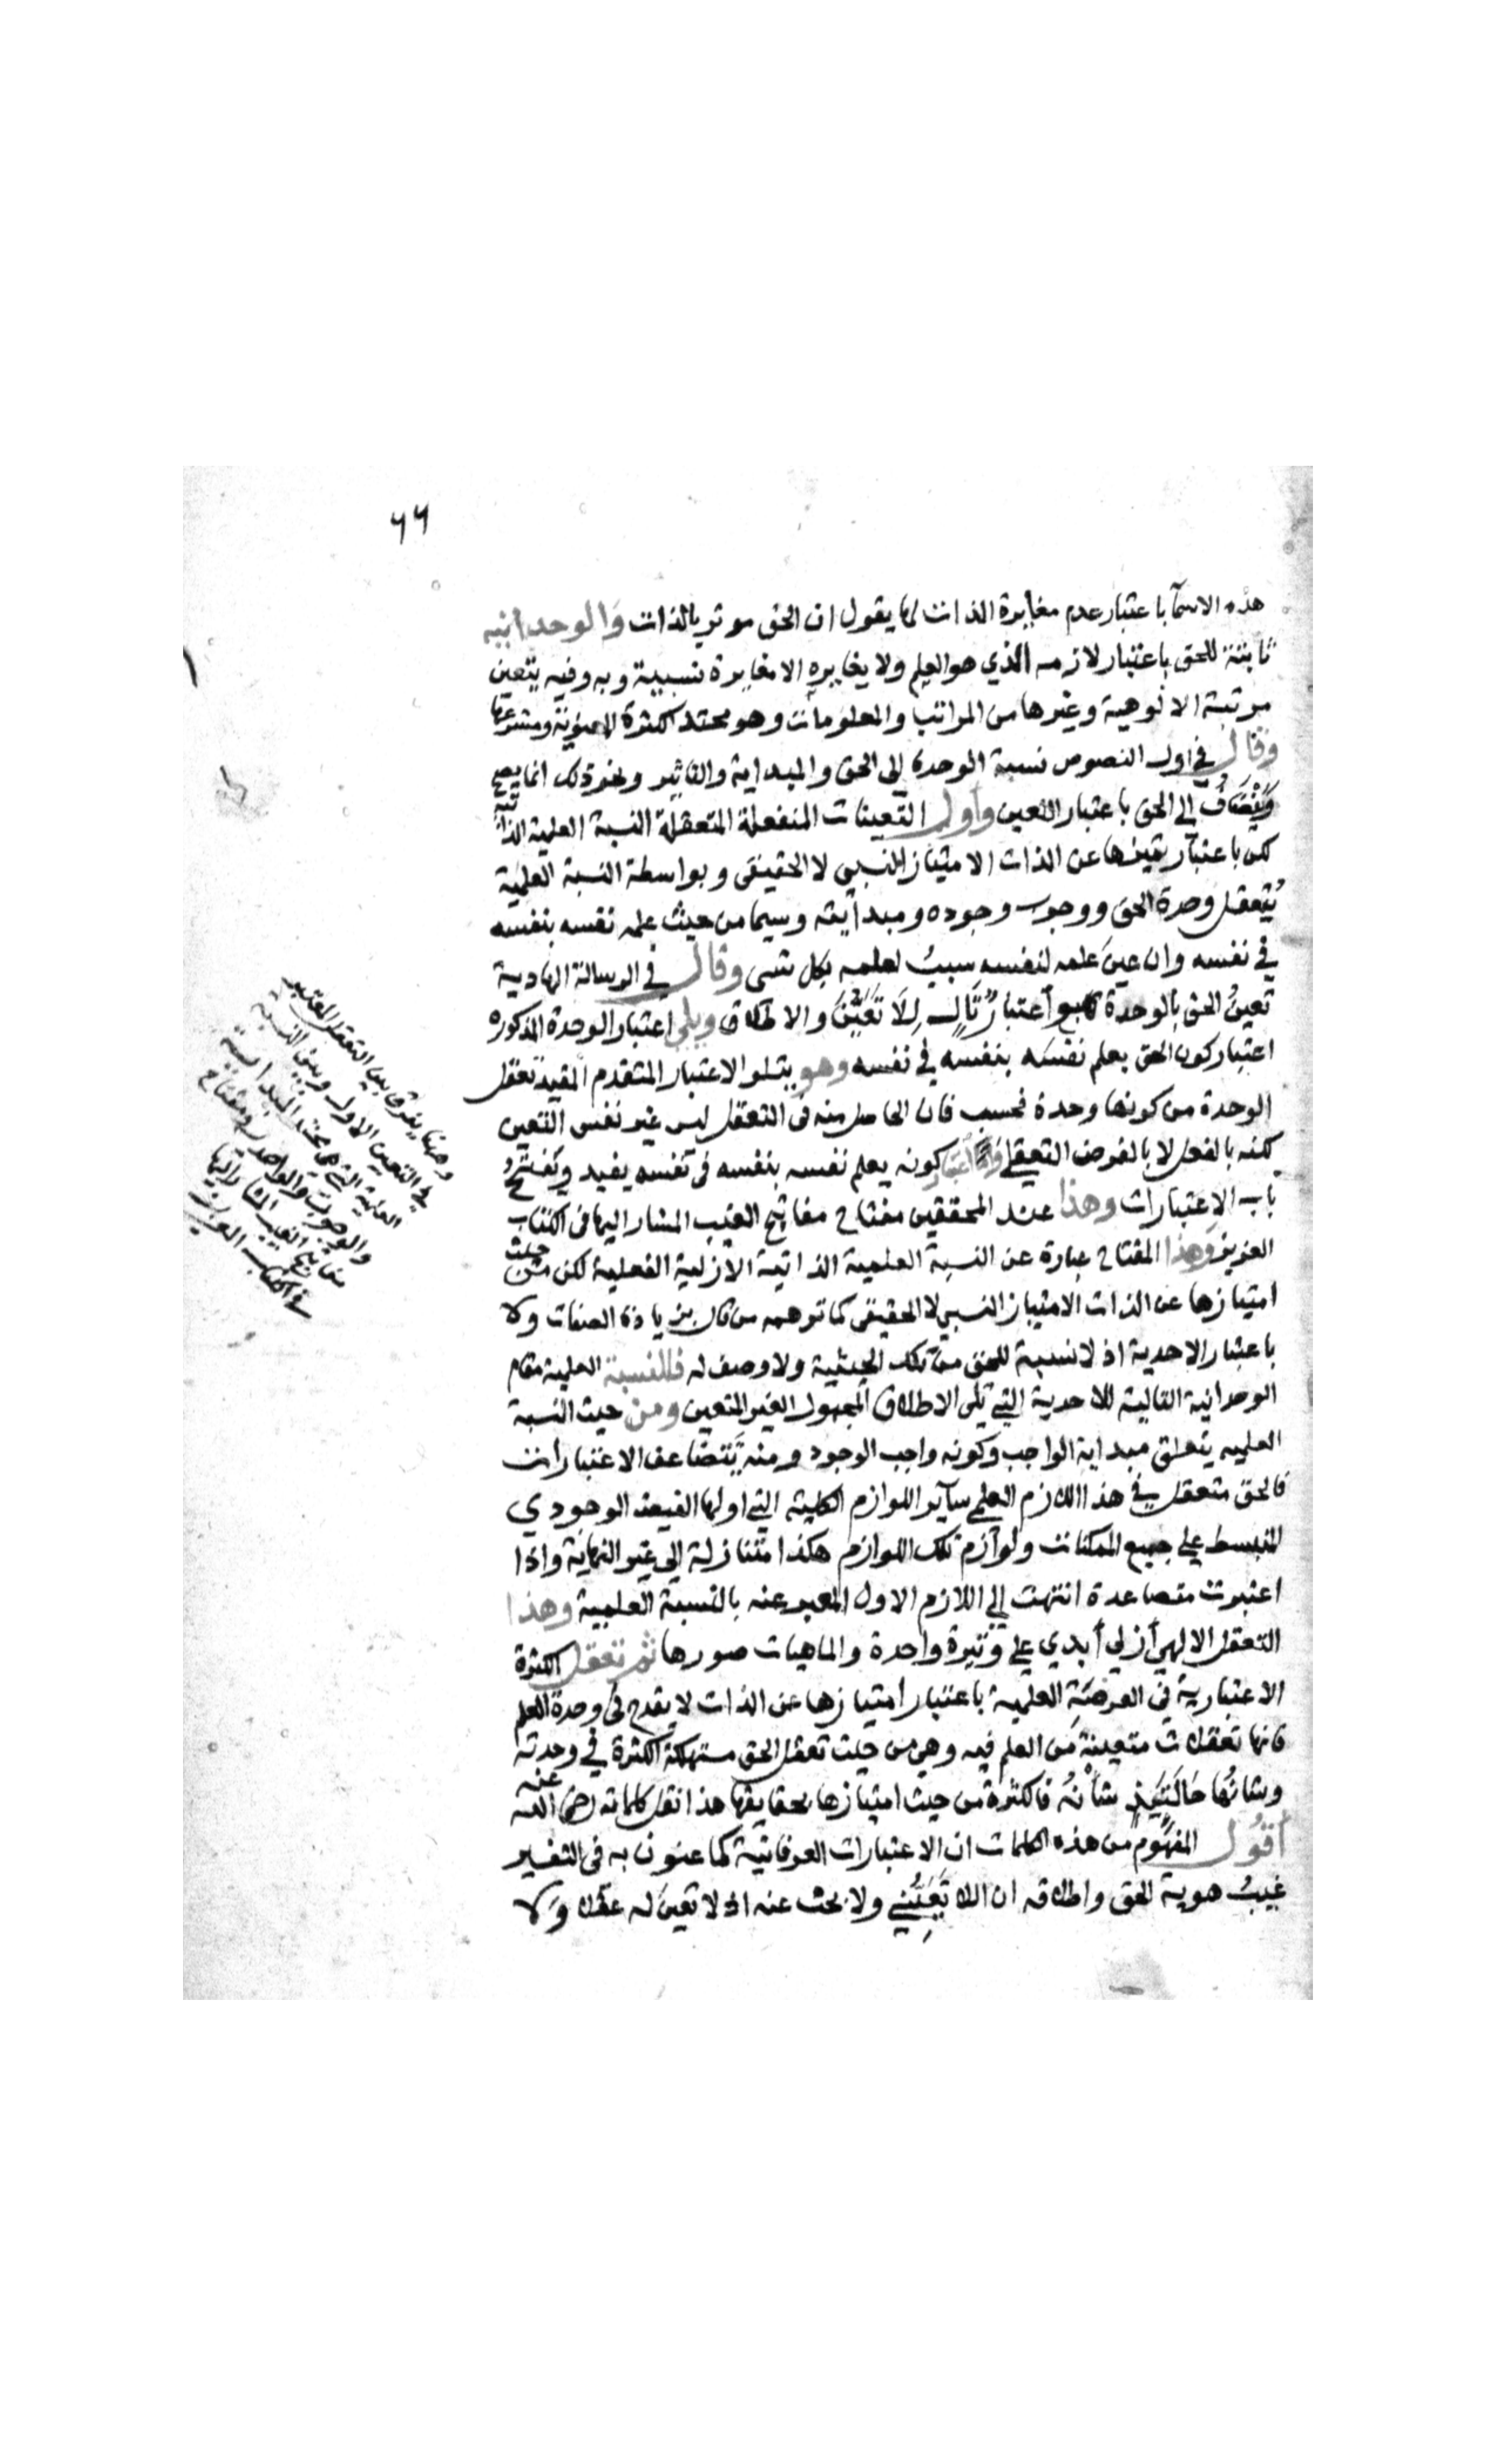 ٦٦
هذه الاسمآ باعتبار عدم مغايرة الذات لها يقول ان الحق موثر بالذات والوحدانيه
ثابتة للحق باعتبار لازمه الذي هو العلم ولا يغايره الا مغايرة نسبية وبه وفيه يتعين
مرتبة الالوهية وغيرها من المراتب والمعلومات وهو محتد الكثرة المعنوية ومشرعها
وقال في اول النصوص نسبة الوحدة الى الحق والمبداية والتاثير ونحو ذلك انما يصح
ويضاف الى الحق باعتبار التعين واول التعينات المتعقلة النسبة العلمية الذاتية
لكن باعتبار تميزها عن الذات الامتياز النسبي لا الحقيقى وبواسطة النسبة العلمية
يُتعقل وحدة الحق ووجوب وجوده ومبدأيته وسيما من حيث علمه نفسه بنفسه
في نفسه وان عين علمه لنفسه سببُ لعلمه بكل شى وقال في الرسالة الهادية
تعينُ الحق بالوحدة اعتبارُ تالٍ للا تعين والاطلاق ويلي اعتبار الوحدة المذكوره
اعتبار كون الحق يعلم نفسه بنفسه في نفسه وهو يتلو الاعتبار المتقدم المفيد تعقل
الوحدة من كونها وحدة فحسب فان الحاصل منه فى التعقل ليس غير نفس التعين
لكنه بالفعل لا بالفرض التعقلي واما اعتبار كونه يعلم نفسه بنفسه فى نفسه يفيد ويفتح
باب الاعتبارات وهذا عند المحققين مفتاح مفاتيح الغيب المشار اليها فى الكتاب
العزيز وهذا المفتاح عبارة عن النسبة العلمية الذاتية الازلية الفعلية لكن من حيث
امتيازها عن الذات الامتياز النسبي لا الحقيقى كما توهمه من قال بزيادة الصفات ولا
باعتبار الاحدية اذ لا نسبة للحق من تلك الحيثية ولا وصف له فالنسبة العلمية مقام
الوحدانية التالية للاحدية التي تلى الاطلاق المجهول الغير المتعين ومن حيث النسبة
العلميه يتعلق مبداية الواجب وكونه واجب الوجود ومنه تتضاعف الاعتبارات
فالحق متعقل في هذا اللازم العلم سآير اللوازم الكلية التي اولها الفيض الوجودي
المنبسط على جميع الممكنات ولوآزم تلك اللوازم هكذا متنازلة الى غير النهاية واذا
اعتبرت متصاعدة انتهت الى اللازم الاول المعبر عنه بالنسبة العلمية وهذا
التعقل الالهي أزلي أبدي على وتيرة واحدة والماهيات صورها ثم تعقل الكثرة
الاعتبارية فى العرصة العلمية باعتبار امتيازها عن الذات لا يقدح فى وحدة العلم
فانها تعقلات متعينة من العلم فيه وهي من حيث تعقل الحق مستهلكة الكثرة في وحدته
وشانها حالتئذ شأنُه فالكثرة من حيث امتيازها بحقايقها هذا نقل كلماته رضى الله عنه
أقول المفهوم من هذه الكلمات ان الاعتبارات العرفانية كما عنون به فى التفسير
غيبُ هوية الحق واطلاقه ان اللا تعيني ولا بحث عنه اذ لا تعينَ له عقلا ولا
وهنا يفرق بين التعقل المعتبر
في التعين الاول وبين النسبة
العلمية التي هي محتد المبدائية
والوجوب والواحد ومفتاح
مفاتيح الغيب المشار اليها
في الكتاب العزيز